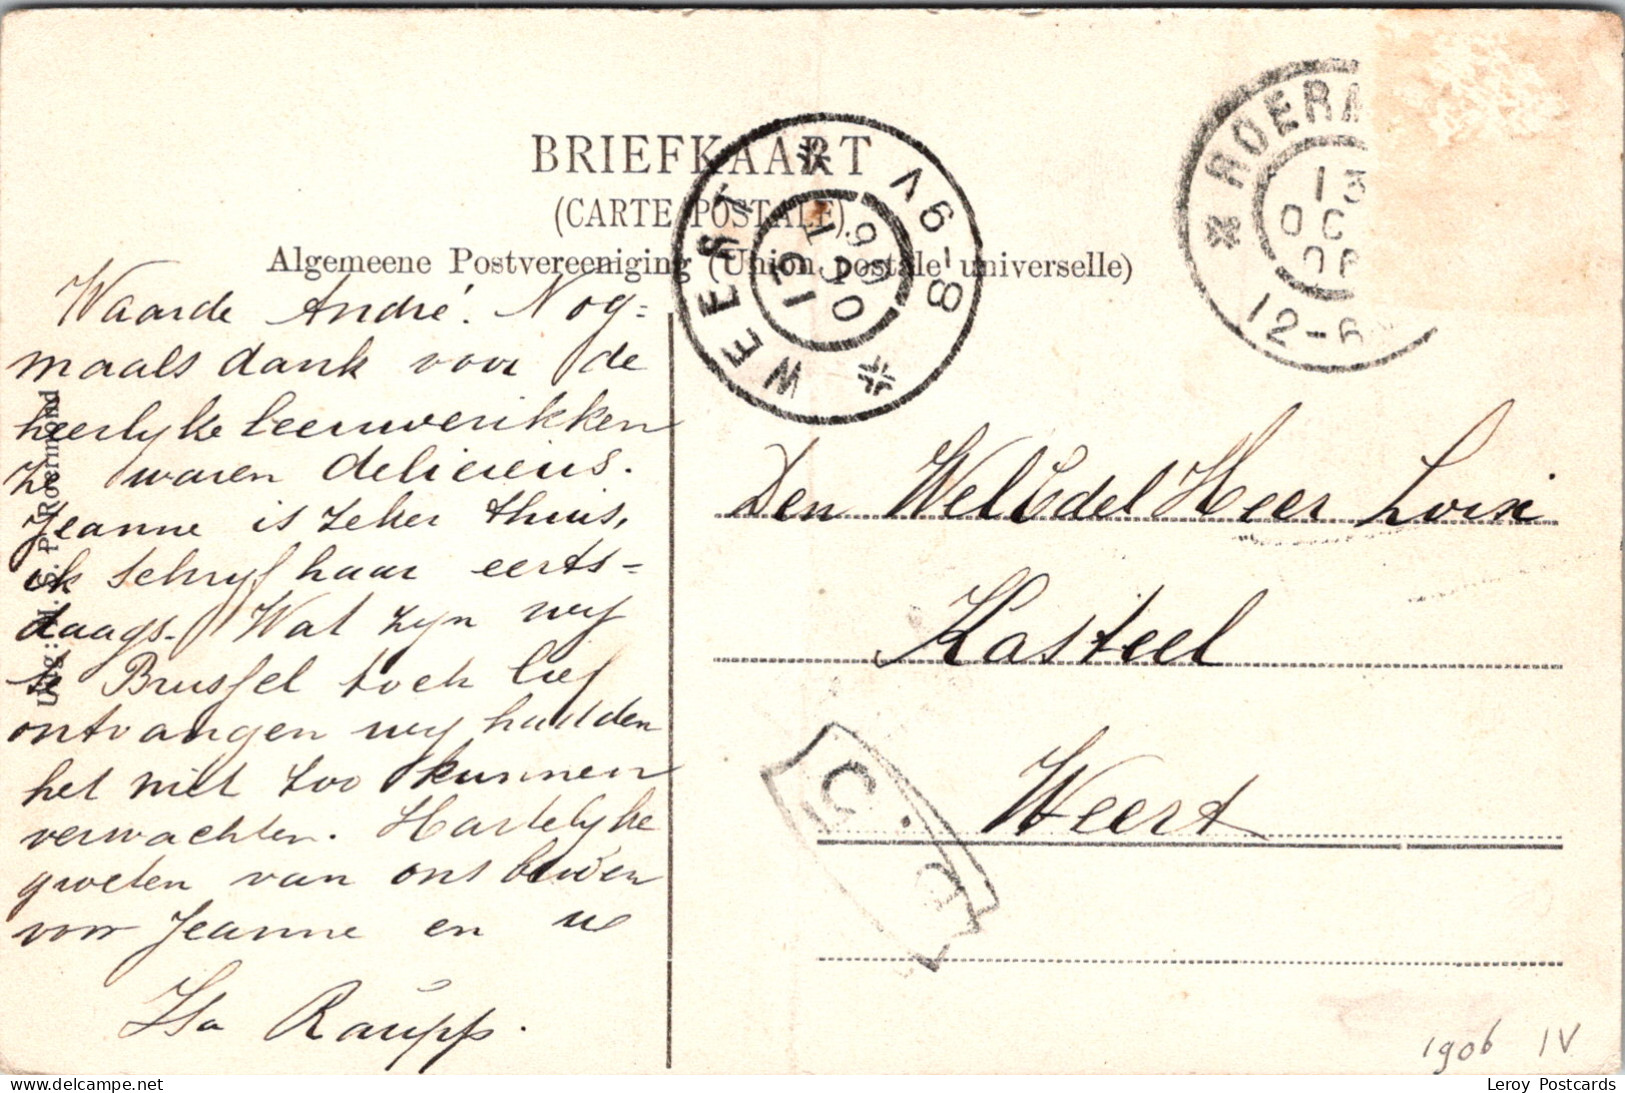 BRIEFKAART
(CARTE POSTALE)
Algemeene Postvereeniging (Union postale universelle)
WEERT
13 OCT 06
V6-8
ROERM
13
OC
06
12-6
Waarde André! Nog=
maals dank voor de
heerlyke leeuwerikken
ze waren delicieus.
Jeanne is zeker thuis,
ik schryf haar eerts=
daags. Wat zyn wy
te Brussel toch lief
ontvangen wy hadden
het niet zoo kunnen
verwachten. Hartelyke
groeten van ons beiden
voor Jeanne en u
Isa Raupp.
Den WelEdel Heer Loix
Kasteel
Weert
Uitg: H. S. P. Roermond
1906 IV
Leroy Postcards